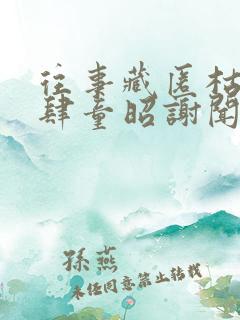 往事藏匿枯
肆童昭謝聞
孫燕
未经同意禁止转载